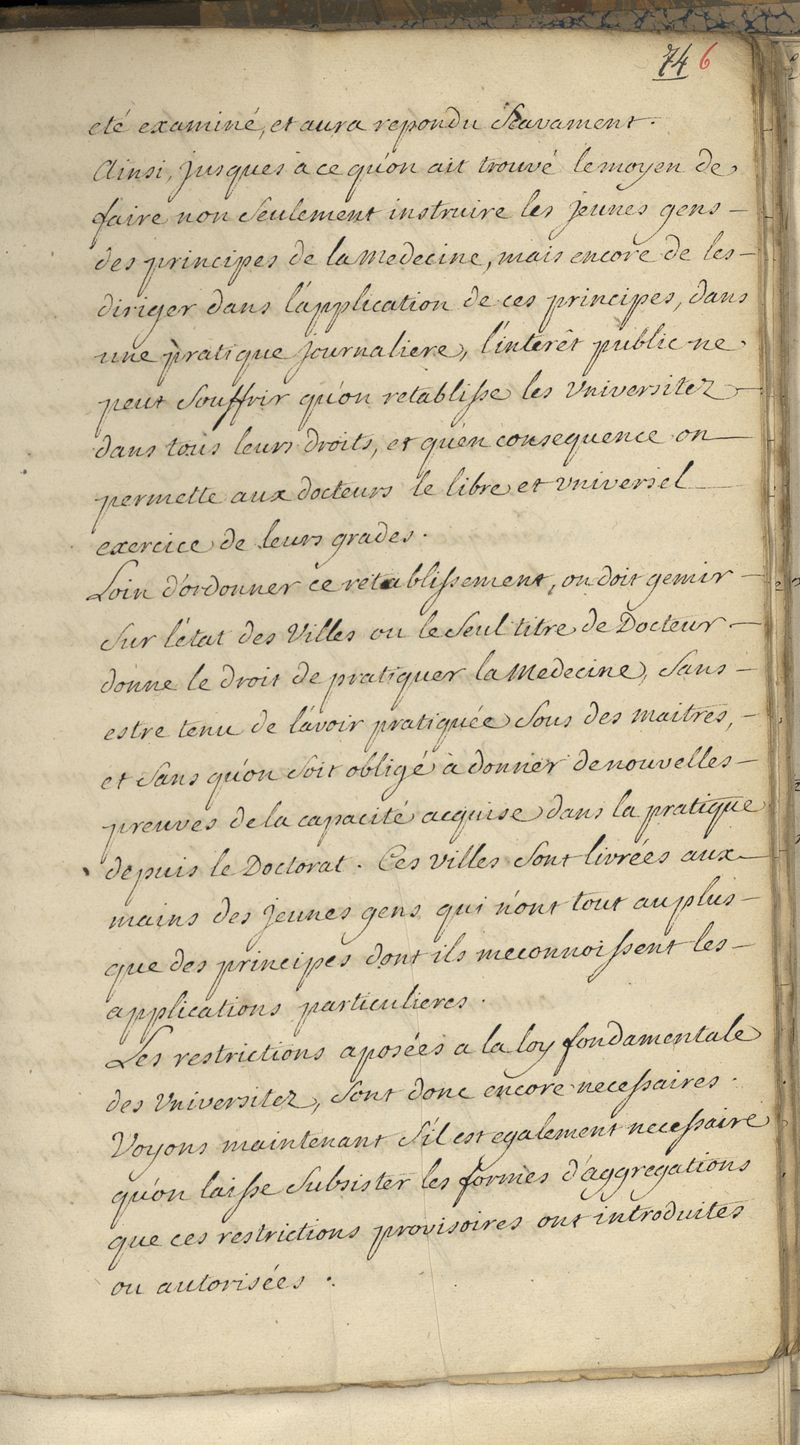 74 6
eté examiné, et aura repondu Scavament.
Ainsi, Jusques a ce qu'on ait trouvé le moyen de
faire non Seulement instruire les Jeunes gens –
des principes de la Medecine, mais encore de les –
diriger dans l'application de ces principes, dans
une pratique Journaliere, l'interêt public ne
peut Souffrir qu'on retablisse les Universitez –
dans tous leurs droits, et qu'en consequence on –
permette aux docteurs le libre et universel –
exercice de leurs grades.
Loin d'ordonner ce retablissement, on doit gemir –
Sur l'état des Villes ou le Seul titre de Docteur –
donne le droit de pratiquer la Medecine, Sans –
estre tenu de l'avoir pratiquée Sous des maitres, –
et Sans qu'on Soit obligé a donner de nouvelles –
preuves de la capacité acquise dans la pratique
depuis le Doctorat. Ces villes Sont livrées aux –
mains des Jeunes gens qui n'ont tout au plus –
que des principes dont ils meconnoissent les –
applications particulieres.
Les restrictions aposées a la loy fondamentale
des Universitez, Sont donc encore necessaires.
Voyons maintenant S'il est egalement necessaire
qu'on laisse Subsister les formes d'aggregations
que ces restrictions provisoires ont introduites
ou autorisées.